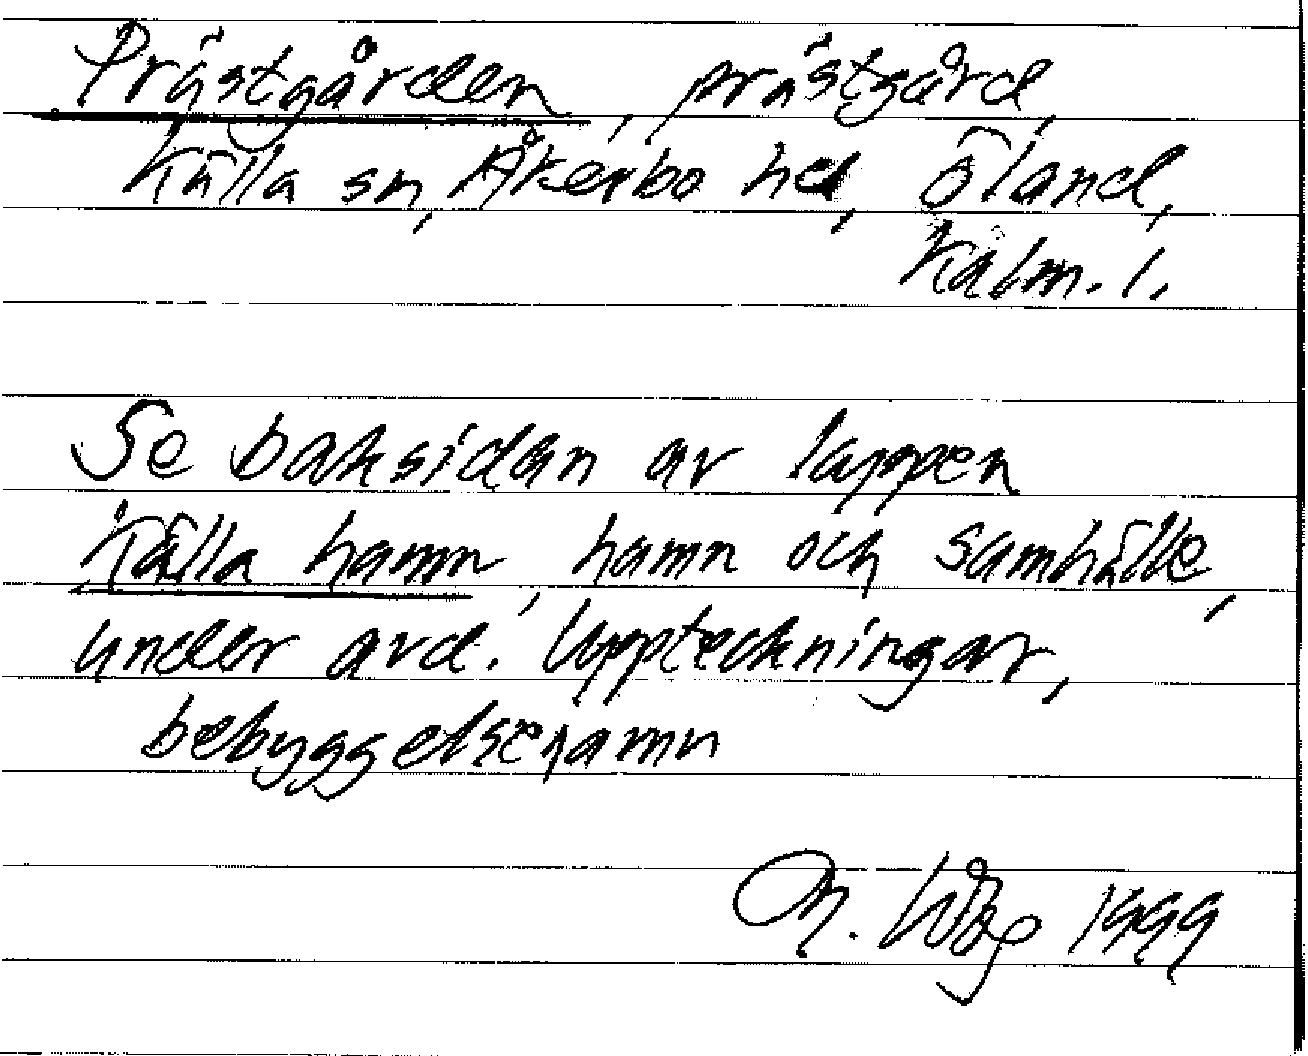 Prästgården, prästgård,
Källa sn, Åkerbo hd, Öland,
Kalm. l.
Se baksidan av lappen
Källa hamn, hamn och samhälle,
under avd. Uppteckningar,
bebyggelsenamn
1999